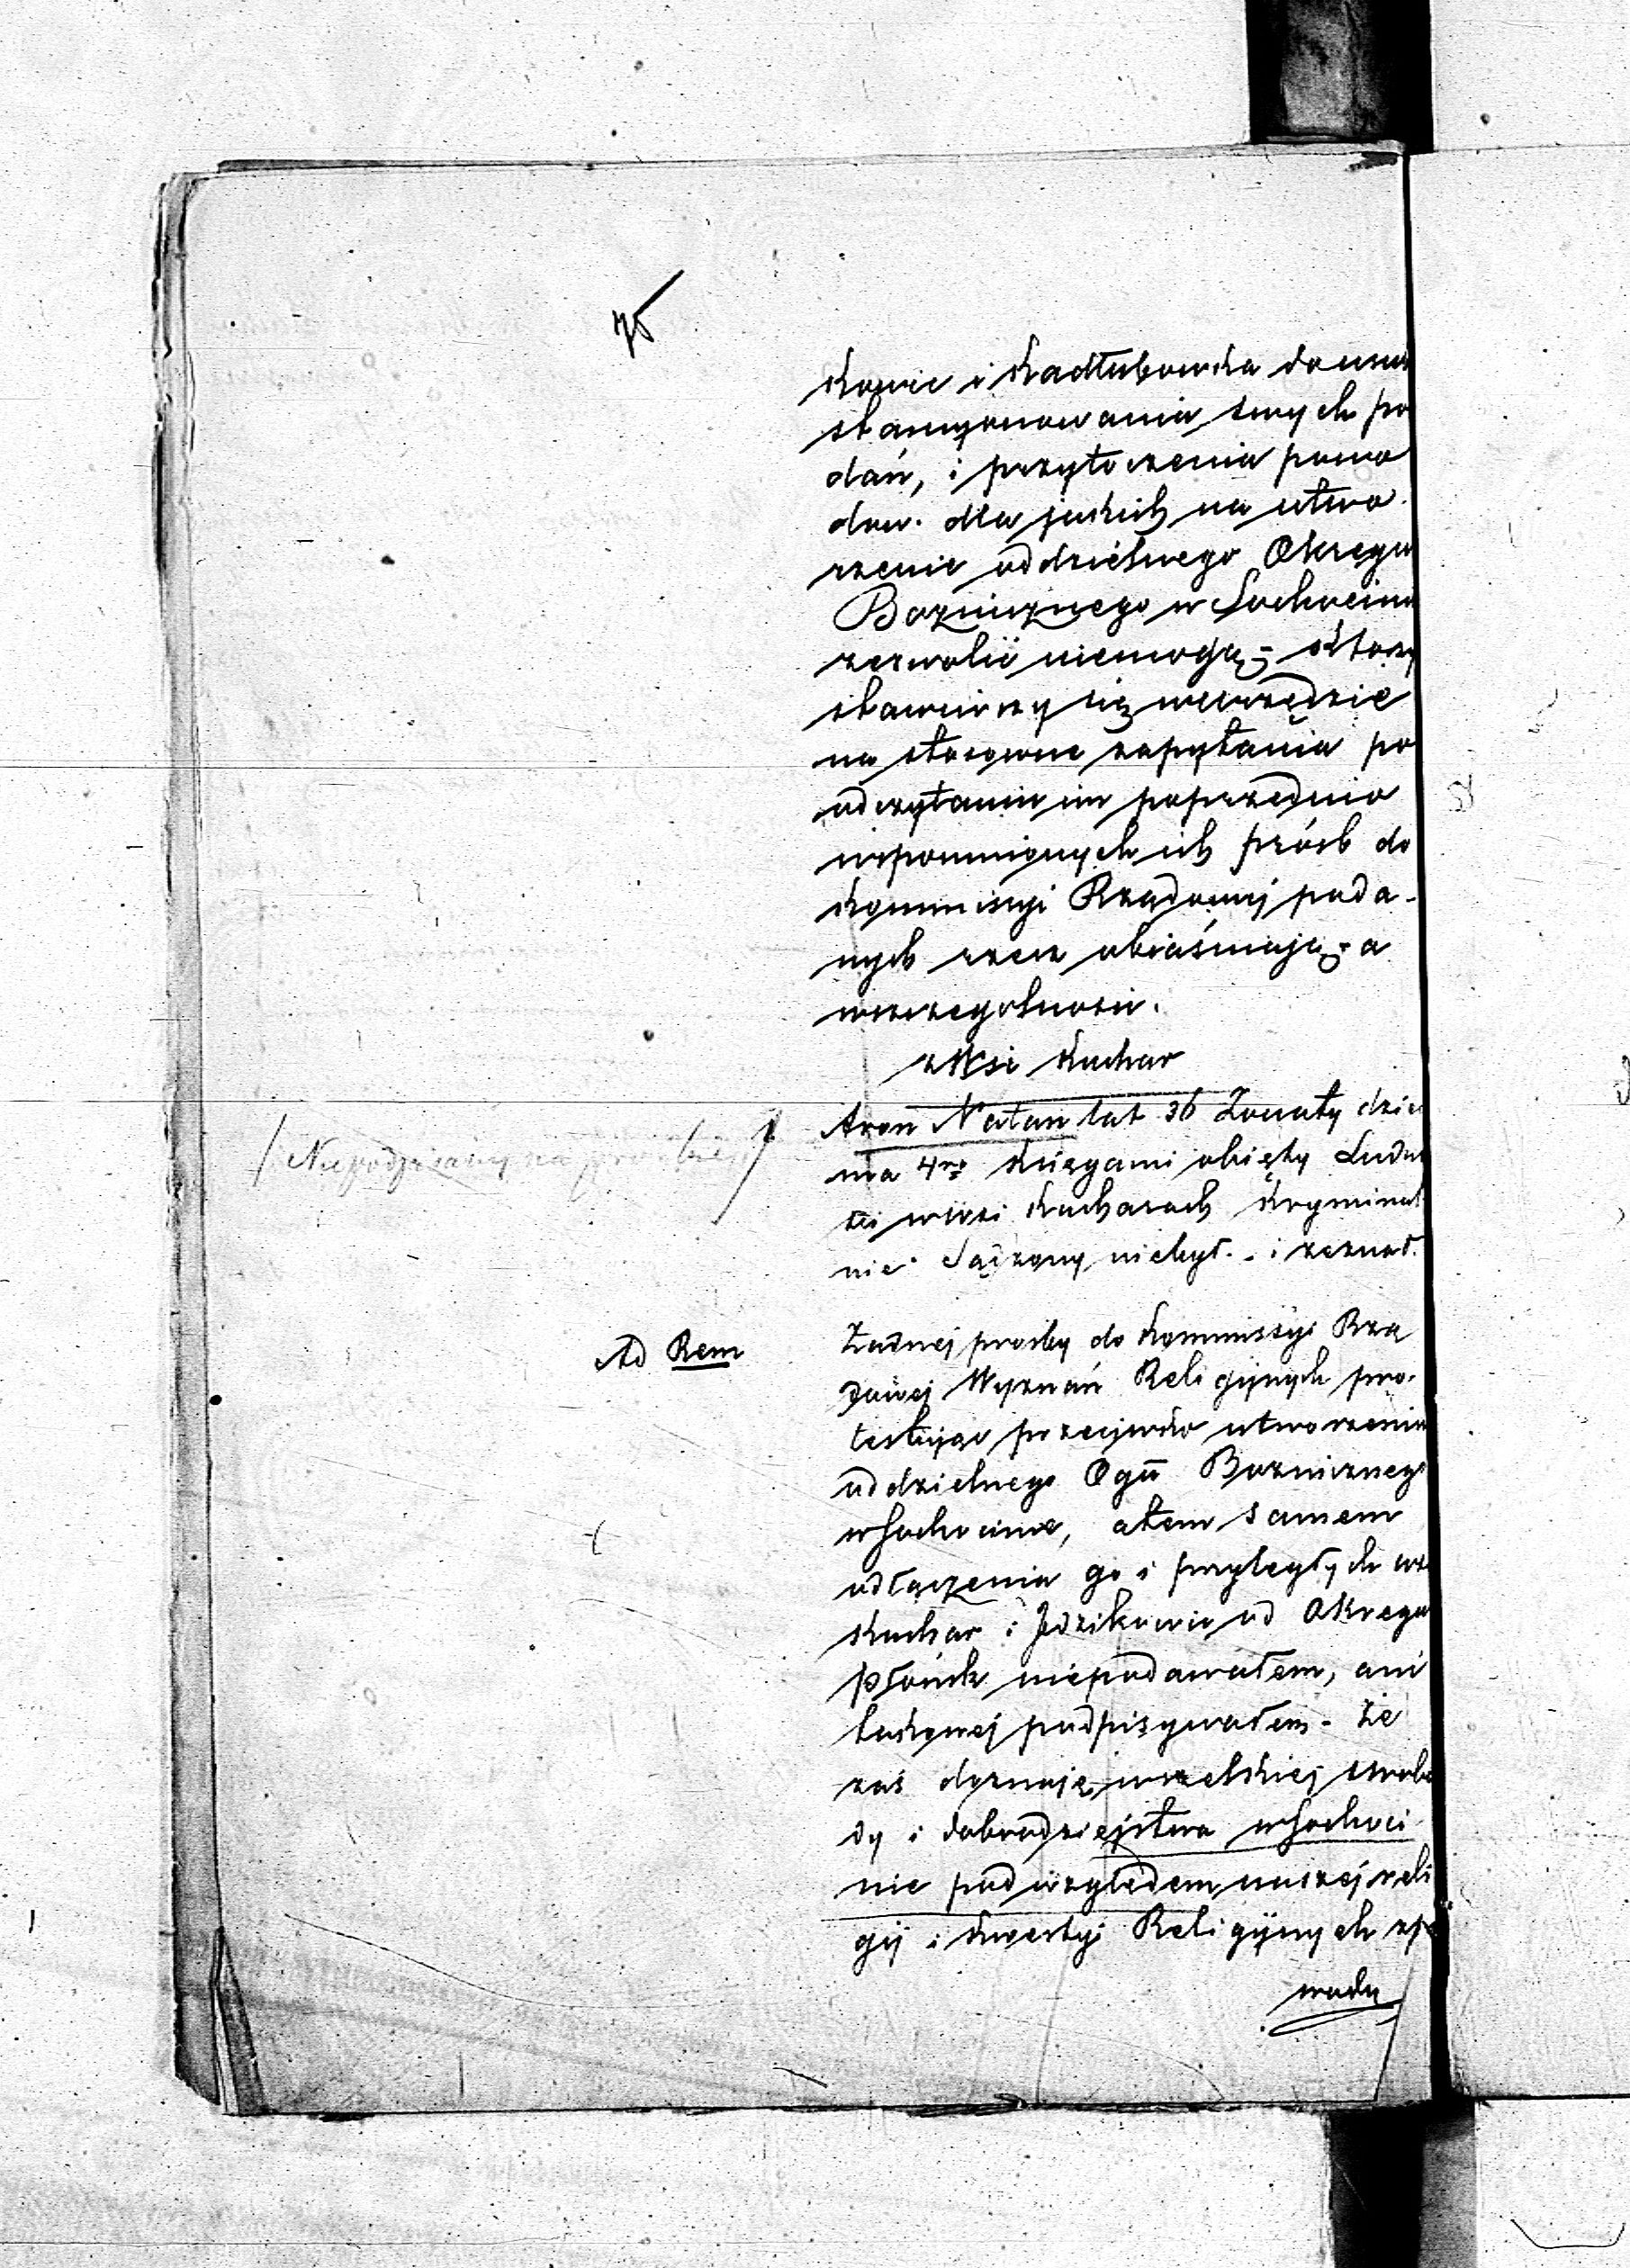 75
kowic i Kadłubowka do usu
stannonowania swych po
dań, i przytoczenia powo
dow. dla jakich na utwo
rzenie oddzielnego Okręgu
Bozniznego w Sochocinie
zezwolić niemogą; którzy
stawiwszy się wurzędzie
na stosowne zapytania po
odczytaniu im poprzednio
wspomnionych ich próśb do
Kommissyi Rządowej poda-
nych rzecz obiaśniają; a
wszczegolności.
z Wsi Kuchar
Aron Natan lat 36 Żonaty dzie
Niepodpisany na prośbie
ma 4ro Księgami obięty Ludno
ści wewsi Kucharach Kryminal
nie Sądzony niebył. - i zeznał.
Ad Rem
Żadnej prośby do Kommissyi Rzą
dowej Wyznań Religijnych pro-
testując przeciwko utworzeniu
oddzielnego Ogu Bozniznego
w Sochocinie, atem samem
odłączenia go i przyległych wsi
Kuchar i Jdzikowic od Okręgu
Płońsk niepodawałem, ani
takowej podpisywałem. Że
zaś doznaję wszelkiej swobo
dy i dobrodziejstwa w Sochoci
nie pod względem naszej reli
gij i Kwestyi Religijnych
wodu